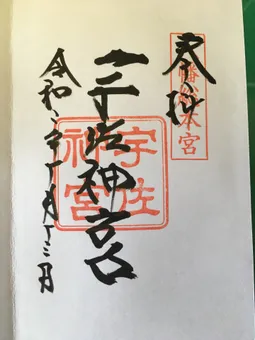 八幡総本宮
奉拝
宇佐神宮
宇佐
神宮
令和二年十月十三日